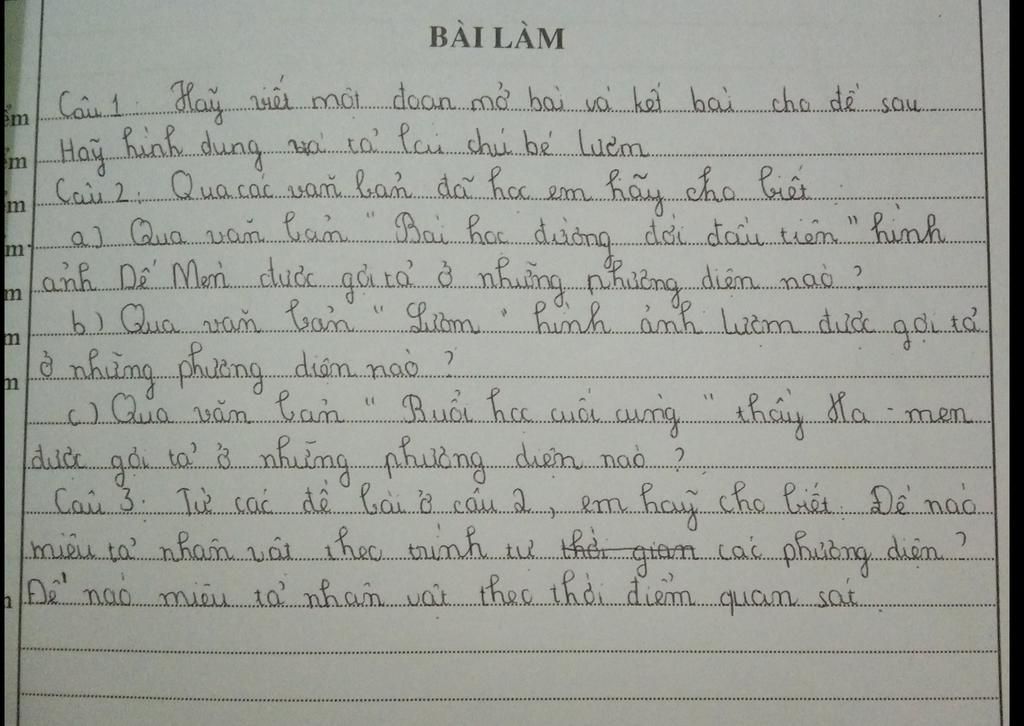 BÀI LÀM
Câu 1: Hãy viết một đoạn mở bài và kết bài cho đề sau
ểm
Hãy hình dung và tả lại chú bé Lượm
m
Câu 2: Qua các văn bản đã học em hãy cho biết:
m
a) Qua văn bản " Bài học đường đời đầu tiên " hình
m
ảnh Dế Mèn được gợi tả ở những phương diện nào ?
m
b) Qua văn bản " Lượm " hình ảnh lượm được gợi tả
m
ở những phương diện nào ?
m
c) Qua văn bản " Buổi học cuối cùng " thầy Ha - men
được gợi tả ở những phương diện nào ?
Câu 3: Từ các đề bài ở câu 2, em hãy cho biết: Đề nào
miêu tả nhân vật theo trình tự thời gian các phương diện ?
Đề nào miêu tả nhân vật theo thời điểm quan sát